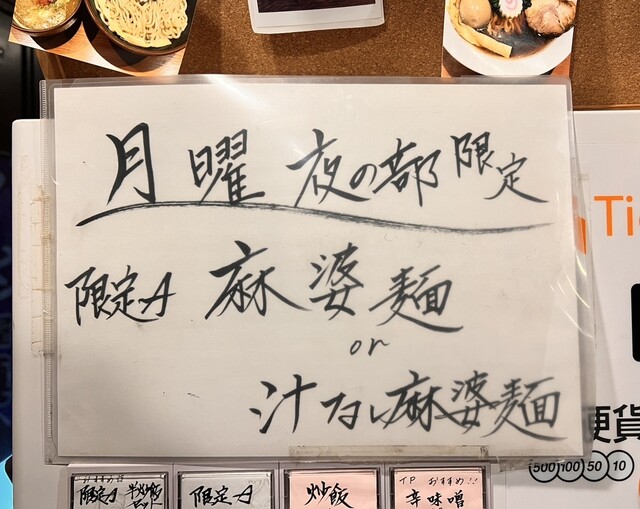 月曜 夜の部 限定
限定A 麻婆麺
or
汁なし麻婆麺
Ti
硬貨
500 100 50 10
おすすめ
限定A 半炒飯
セット
限定A
炒飯
T.P おすすめ!!
辛味噌